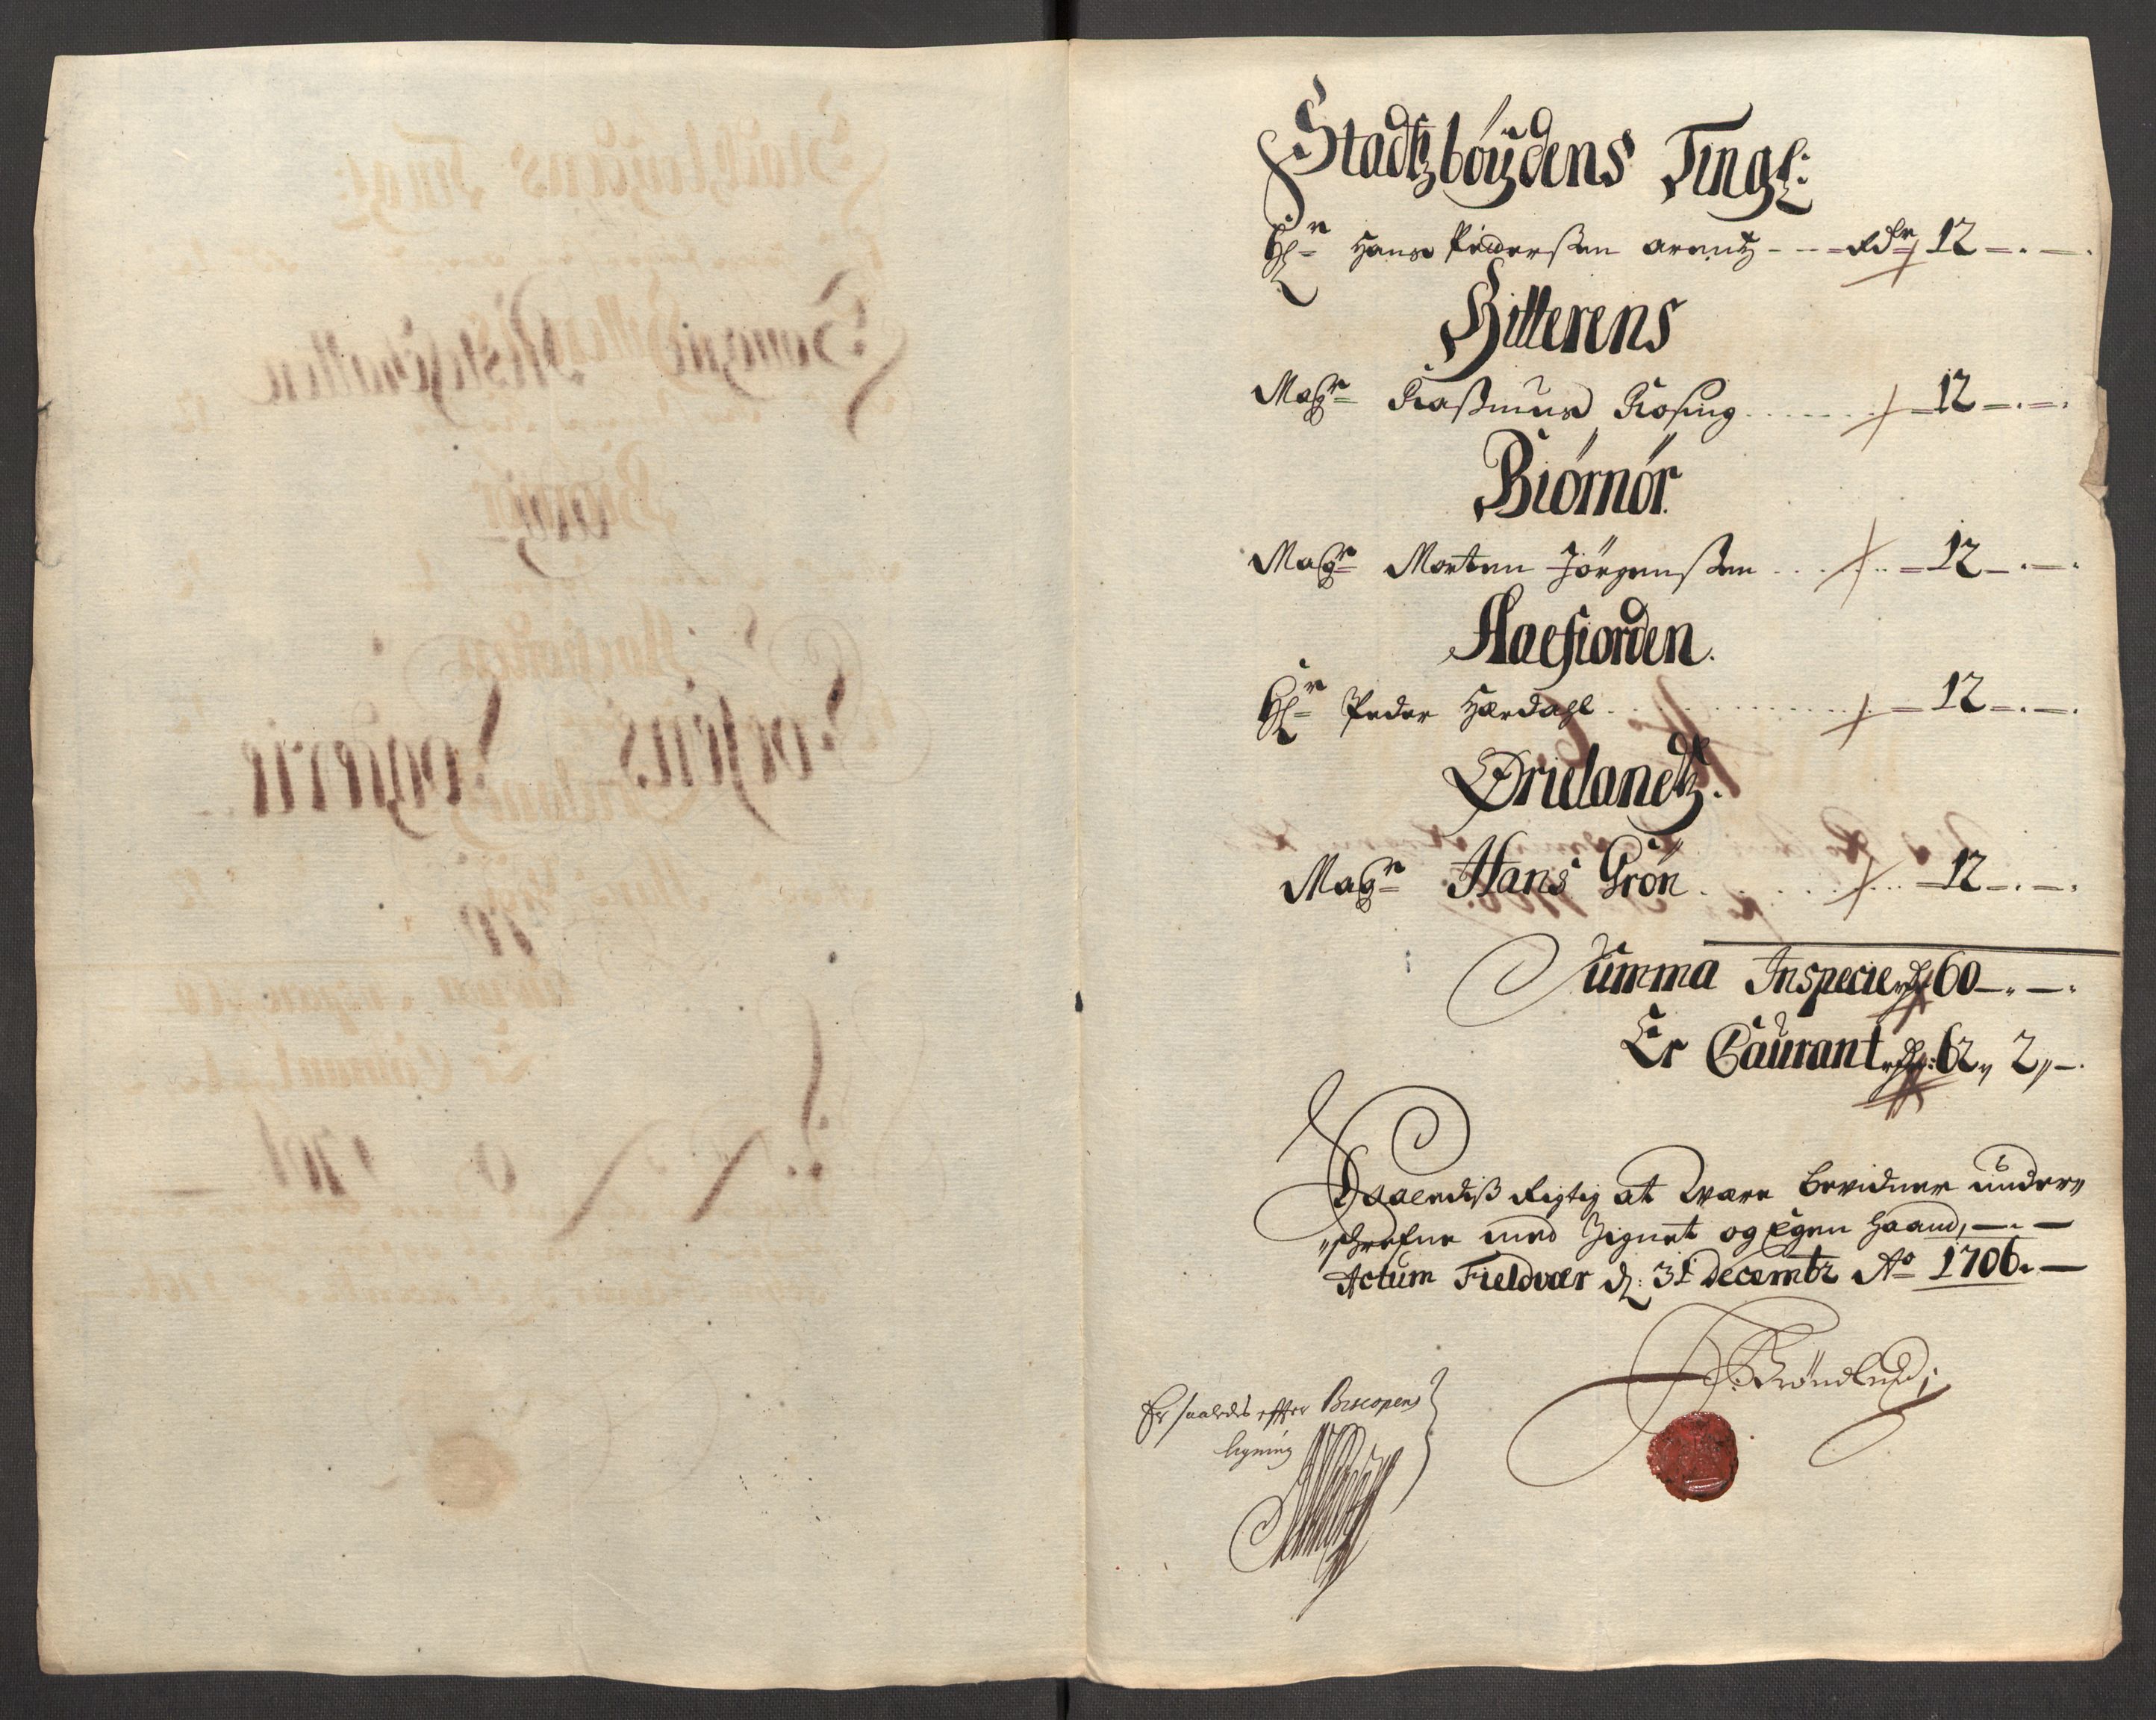 Stadtzbøÿdens Tingl:
Hr Hans Pederssen Arentz - - - Rdr 12 -.-
Hitterens
Magr Rassmus Rosing . . . . . - 12 -.-
Biørnør
Magr Morten Jørgenssen . . . . - 12 -.-
Aaefiorden.
Hr Peder Hærdahl . . . . . . - 12 -.-
Ørielandtz.
Magr Hans Grøn . . . . . . - 12 -.-
Summa Inspecie rdr 60 -.-
Er Caurant rdr: 62,, 2,, -
Saalediß Rigtig at være bevidner under,,
,,schrefne med Zignet og Egen haand, -.-
Actum Fieldvær d: 31 decembr Ao 1706. -
Er saaledis effter Biscopens
ligning